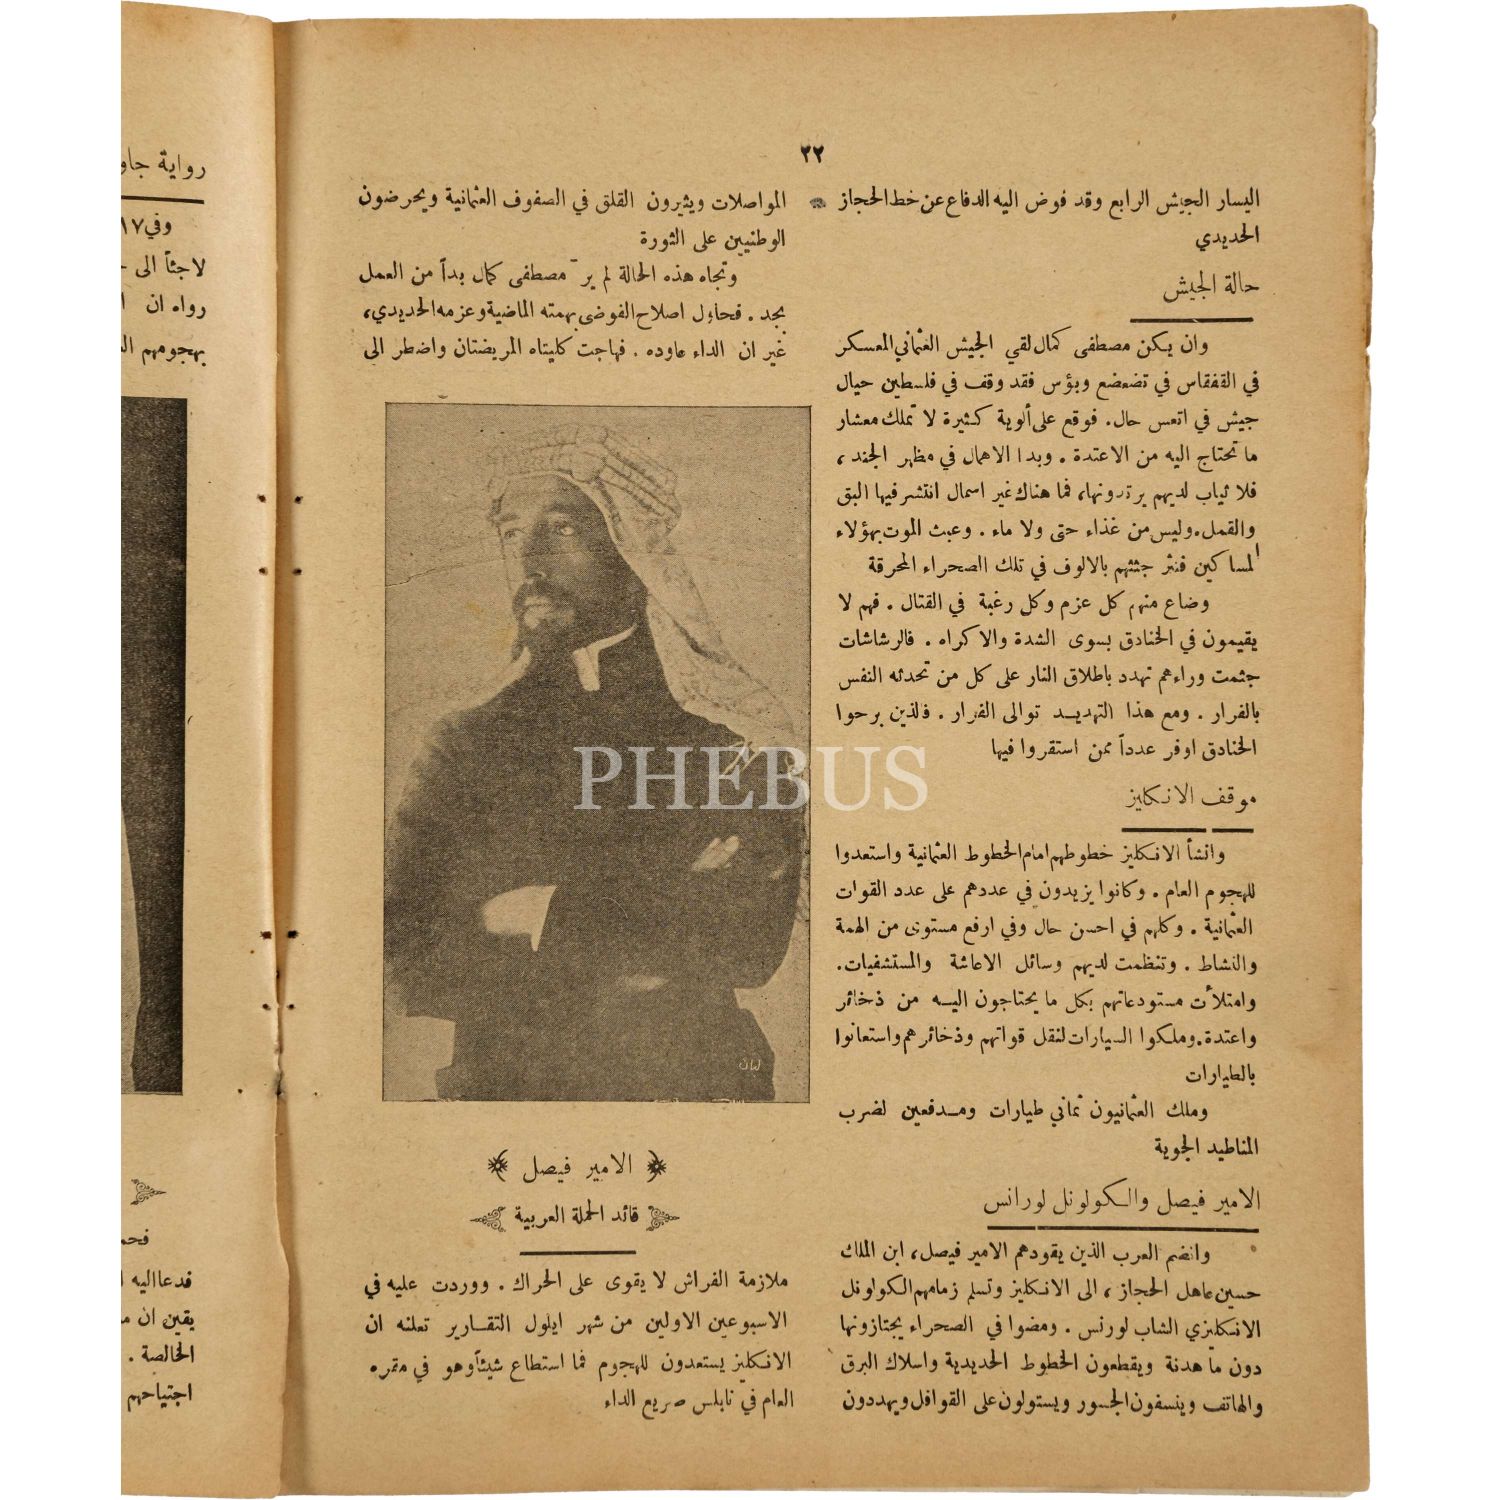 ٢٢
اليسار الجيش الرابع وقد فوض اليه الدفاع عن خط الحجاز
الحديدي
حالة الجيش
وان يكن مصطفى كمال لقي الجيش العثماني المعسكر
في القفقاس في تضعضع وبؤس فقد وقف في فلسطين حيال
جيش في اتعس حال. فوقع على ألوية كثيرة لا تملك معشار
ما تحتاج اليه من الاعتدة . وبدا الاهمال في مظهر الجند ،
فلا ثياب لديهم يرتدونها، فما هناك غير اسمال انتشر فيها البق
والقمل. وليس من غذاء حتى ولا ماء . وعبث الموت بهؤلاء
المساكين فنثر جثثهم بالالوف في تلك الصحراء المحرقة
وضاع منهم كل عزم وكل رغبة في القتال . فهم لا
يقيمون في الخنادق بسوى الشدة والاكراه . فالرشاشات
جثمت وراءهم تهدد باطلاق النار على كل من تحدثه النفس
بالفرار . ومع هذا التهديد توالى الفرار . فالذين برحوا
الخنادق اوفر عدداً ممن استقروا فيها
موقف الانكليز
وانشأ الانكليز خطوطهم امام الخطوط العثمانية واستعدوا
للهجوم العام . وكانوا يزيدون في عددهم على عدد القوات
العثمانية . وكلهم في احسن حال وفي ارفع مستوى من الهمة
والنشاط . وتنظمت لديهم وسائل الاعاشة والمستشفيات.
وامتلأت مستودعاتهم بكل ما يحتاجون اليه من ذخائر
واعتدة. وملكوا السيارات لنقل قواتهم وذخائرهم واستعانوا
بالطيارات
وملك العثمانيون ثماني طيارات ومدفعين لضرب
المناطيد الجوية
الامير فيصل والكولونل لورانس
وانضم العرب الذين يقودهم الامير فيصل، ابن الملك
حسين عاهل الحجاز ، الى الانكليز وتسلم زمامهم الكولونل
الانكليزي الشاب لورنس . ومضوا في الصحراء يجتازونها
دون ما هدنة ويقطعون الخطوط الحديدية واسلاك البرق
والهاتف وينسفون الجسور ويستولون على القوافل ويهددون
المواصلات ويثيرون القلق في الصفوف العثمانية ويحرضون
الوطنيين على الثورة
وتجاه هذه الحالة لم يرَ مصطفى كمال بداً من العمل
بجد . فحاول اصلاح الفوضى بهمته الماضية وعزمه الحديدي،
غير ان الداء عاوده . فهاجت كليتاه المريضتان واضطر الى
الامير فيصل
قائد الحملة العربية
ملازمة الفراش لا يقوى على الحراك . ووردت عليه في
الاسبوعين الاولين من شهر ايلول التقارير تعلنه ان
الانكليز يستعدون للهجوم فما استطاع شيئاً وهو في مقره
العام في نابلس صريع الداء
رواية جاو
وفي ١٧
لاجئاً الى
رواه ان
بهجومهم
فحم
فدعا اليه
يقين ان
الخالصة .
اجتياحهم
PHEBUS